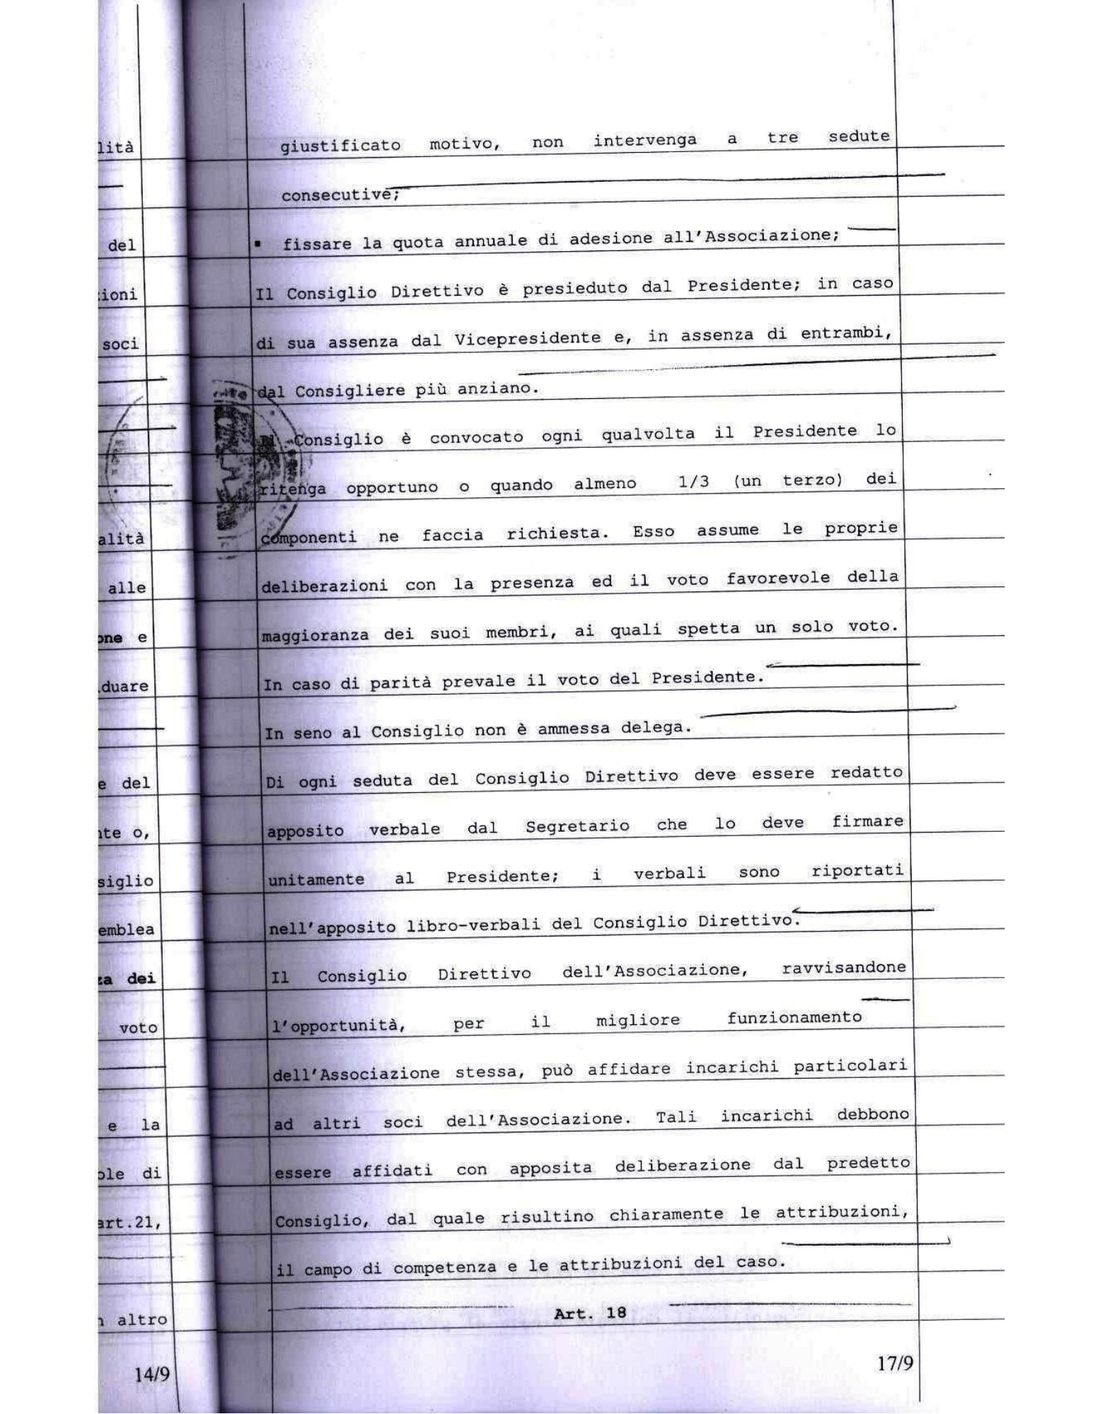 lità
del
ioni
soci
alità
alle
one e
duare
e del
nte o,
siglio
emblea
za dei
voto
e la
ole di
art.21,
n altro
14/9
giustificato motivo, non intervenga a tre sedute
consecutive;
▪ fissare la quota annuale di adesione all'Associazione;
Il Consiglio Direttivo è presieduto dal Presidente; in caso
di sua assenza dal Vicepresidente e, in assenza di entrambi,
dal Consigliere più anziano.
Il Consiglio è convocato ogni qualvolta il Presidente lo
ritenga opportuno o quando almeno 1/3 (un terzo) dei
componenti ne faccia richiesta. Esso assume le proprie
deliberazioni con la presenza ed il voto favorevole della
maggioranza dei suoi membri, ai quali spetta un solo voto.
In caso di parità prevale il voto del Presidente.
In seno al Consiglio non è ammessa delega.
Di ogni seduta del Consiglio Direttivo deve essere redatto
apposito verbale dal Segretario che lo deve firmare
unitamente al Presidente; i verbali sono riportati
nell'apposito libro-verbali del Consiglio Direttivo.
Il Consiglio Direttivo dell'Associazione, ravvisandone
l'opportunità, per il migliore funzionamento
dell'Associazione stessa, può affidare incarichi particolari
ad altri soci dell'Associazione. Tali incarichi debbono
essere affidati con apposita deliberazione dal predetto
Consiglio, dal quale risultino chiaramente le attribuzioni,
il campo di competenza e le attribuzioni del caso.
Art. 18
17/9